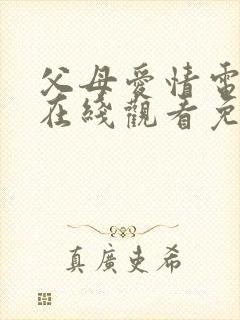 父母愛情電
在綫觀看免
真廣史希